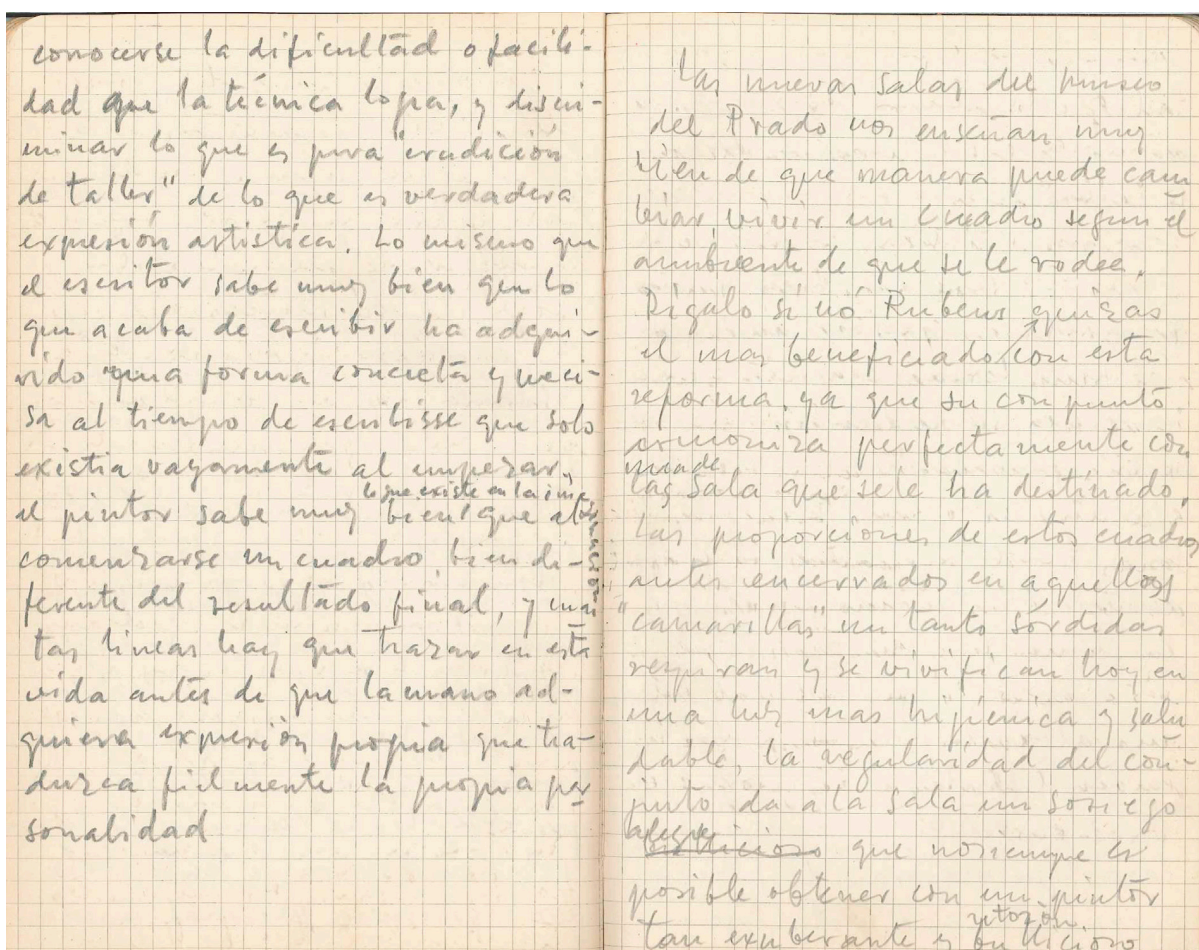 conocerse la dificultad o facili-
dad que la técnica logra, y discri-
minar lo que es pura "erudición
de taller" de lo que es verdadera
expresión artistica. Lo mismo que
el escritor sabe muy bien que lo
que acaba de escribir ha adqui-
rido una forma concreta y preci-
sa al tiempo de escribirse que solo
existia vagamente al empezar,
lo que existe en la imaginación
el pintor sabe muy bien que al
comenzarse un cuadro, bien di-
ferente del resultado final, y cuan
tas lineas hay que trazar en esta
vida antes de que la mano ad-
quiera expresión propia que tra-
duzca fielmente la propia per
sonalidad
Las nuevas salas del museo
del Prado nos enseñan muy
bien de que manera puede cam
biar, vivir un cuadro segun el
ambiente de que se le rodee.
Digalo si nó Rubens quizas
el mas beneficiado con esta
reforma, ya que su conjunto
armoniza perfectamente con
la sala que se le ha destinado.
Las proporciones de estos cuadros
antes encerrados en aquellas
"camarillas" un tanto sórdidas
respiran y se vivifican hoy en
una luz mas higiénica y salu
dable, la regularidad del con-
junto da a la sala un sosiego
alegre
que no siempre es
posible obtener con un pintor
retozón
tan exuberante y bullicioso